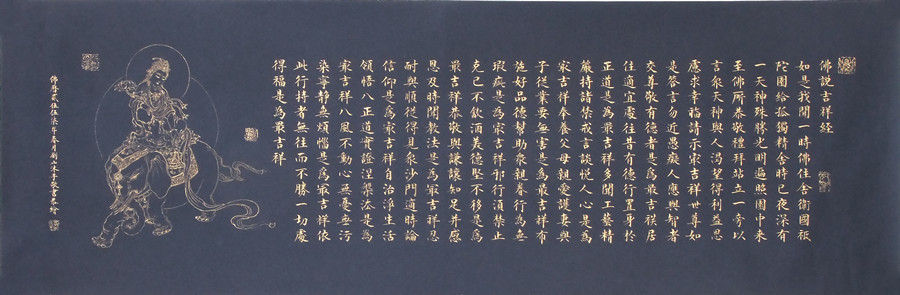 佛說吉祥經
如是我聞一時佛住舍衛國祇
陀園給孤獨精舍時已夜深有
一天神殊勝光明遍照園中來
至佛所恭敬禮拜站立一旁以
言眾天神與人渴望得利益思
慮求幸福請示最吉祥世尊如
是答言勿近愚癡人應與智者
交尊敬有德者是為最吉祥居
住適宜處往昔有德行置身於
正道是為最吉祥多聞工藝精
嚴持諸禁戒言談悅人心是為
最吉祥奉養父母親愛護妻與
子從業要無害是為最吉祥布
施好品德幫助眾親眷行為無
瑕疵是為最吉祥邪行須禁止
克己不飲酒美德堅不移是為
最吉祥恭敬與謙讓知足并感
恩及時聞教法是為最吉祥忍
耐與順從得見眾沙門適時論
信仰是為最吉祥自治淨生活
領悟八正道實證涅槃法是為
最吉祥八風不動心無憂無污
染寧靜無煩惱是為最吉祥依
此行持者無往而不勝一切處
得福是為最吉祥
佛曆貳伍伍柒年